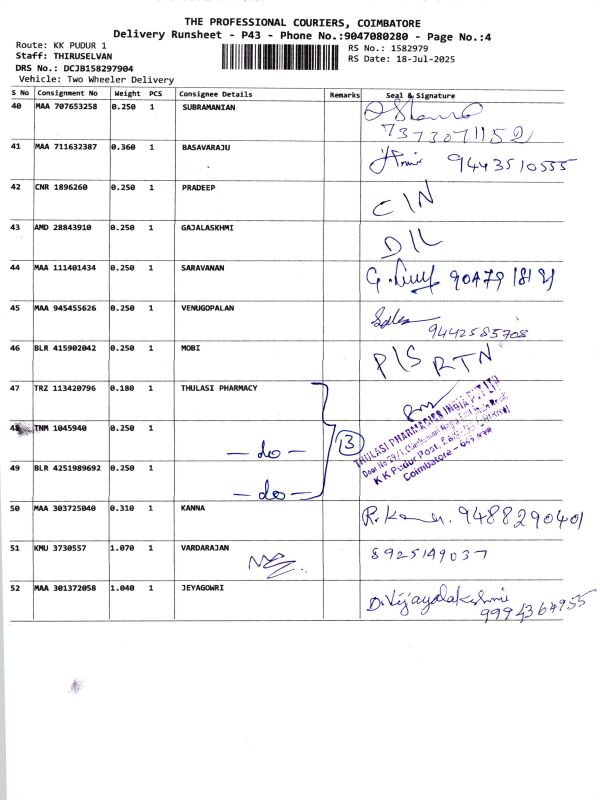 THE PROFESSIONAL COURIERS, COIMBATORE
Delivery Runsheet - P43 - Phone No.:9047080280 - Page No.:4
Route: KK PUDUR 1
RS No.: 1582979
Staff: THIRUSELVAN
RS Date: 18-Jul-2025
DRS No.: DCJB158297904
Vehicle: Two Wheeler Delivery
S No Consignment No Weight PCS Consignee Details Remarks Seal & Signature
40 MAA 707653258 0.250 1 SUBRAMANIAN
7373071152
41 MAA 711632387 0.360 1 BASAVARAJU 9443510555
42 CNR 1896260 0.250 1 PRADEEP C/N
43 AMD 28843910 0.250 1 GAJALASKHMI D/L
44 MAA 111401434 0.250 1 SARAVANAN
45 MAA 945455626 0.250 1 VENUGOPALAN
9442585708
46 BLR 415902042 0.250 1 MOBI P/S RTN
47 TRZ 113420796 0.180 1 THULASI PHARMACY
48 TNM 1045940 0.250 1
— do — 3
49 BLR 4251989692 0.250 1
— do —
THULASI PHARMACIES INDIA PVT LTD
K K Pudur Post,
Coimbatore -
50 MAA 303725040 0.310 1 KANNA 9488290401
51 KMU 3730557 1.070 1 VARDARAJAN 8925149037
52 MAA 301372058 1.040 1 JEYAGOWRI D.Vijayalakshmi
9994364955